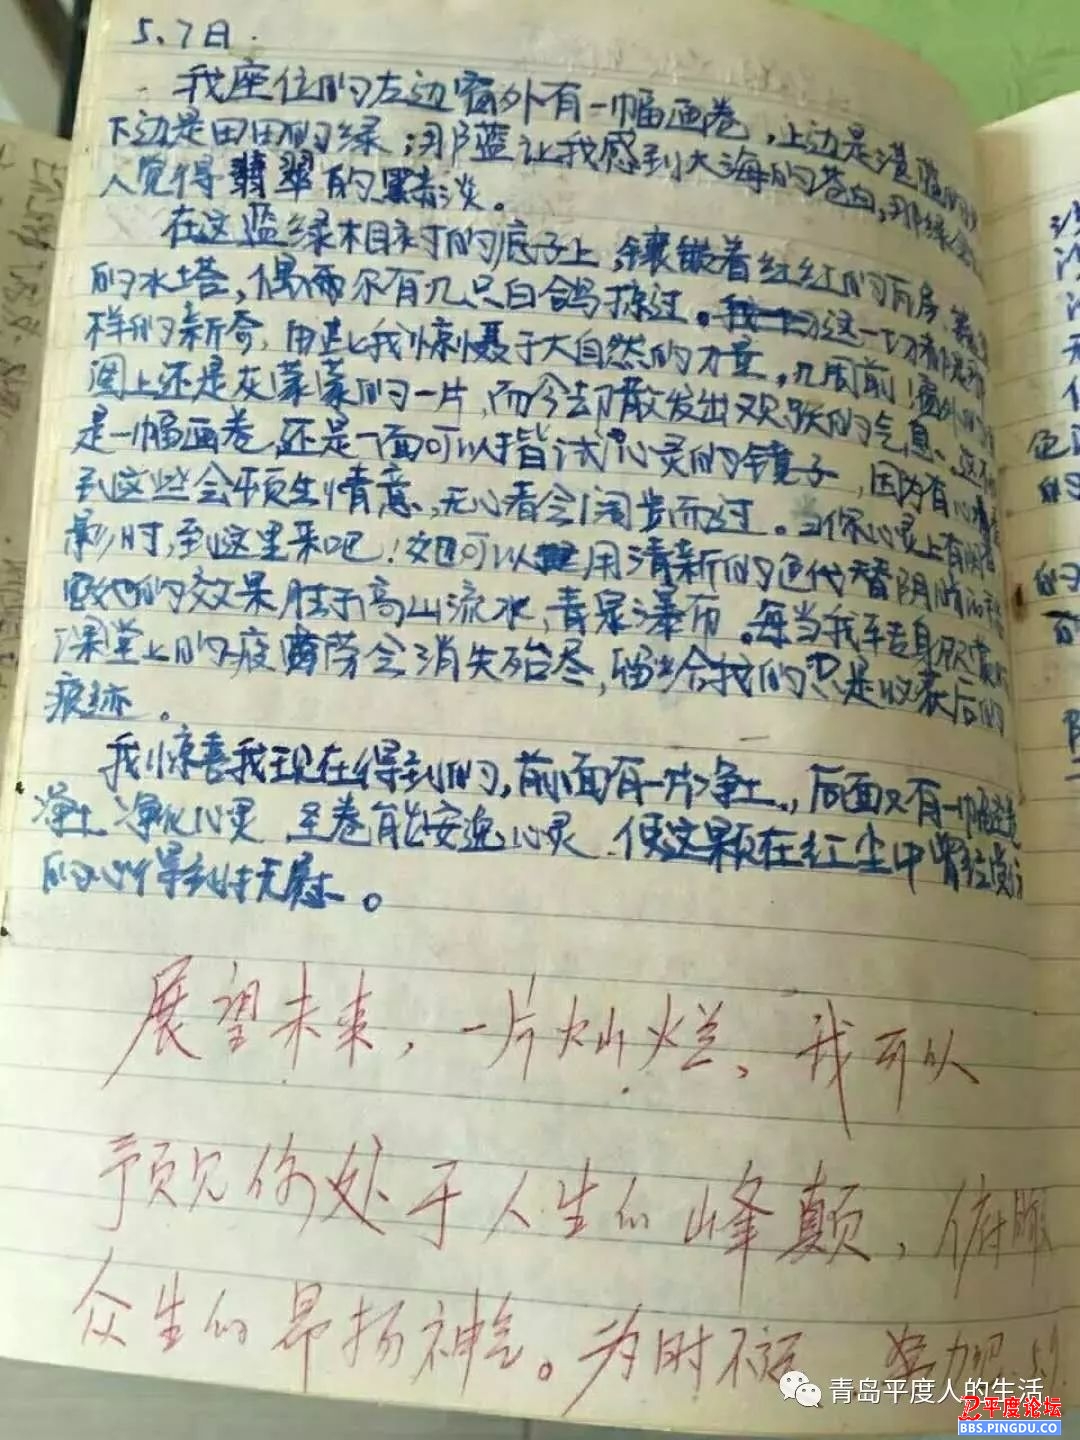 5.7日.
我座位的左边窗外有一幅画卷,上边是湛蓝的
下边是田田的绿;那蓝让我感到大海的苍白,那绿
人觉得翡翠的黯淡。
在这蓝绿相衬的底子上,镶嵌着红红的瓦房、
的水塔,偶尔有几只白鸽掠过。这一切都是
样的新奇,由此我惊慑于大自然的力量,几周前!窗外的
还是灰蒙蒙的一片,而今却散发出欢跃的气息。这不
是一幅画卷,还是一面可以揩试心灵的镜子,因为有心
到这些会顿生情意,无心者会阔步而过。当你心灵上有阴
影时,到这里来吧!她可以用清新的色代替阴暗的
她的效果胜于高山流水,青泉瀑布。每当我转身欣赏
课堂上的疲劳会消失殆尽,留给我的只是收获后的
痕迹。
我惊喜我现在得到的,前面有一片净土,后面又有一幅
净土净化心灵 画卷能安逸心灵 使这颗在红尘中曾经
的心得到抚慰。
展望未来,一片灿烂、我可以
预见你处于人生的峰巅,俯瞰
众生的昂扬神气。为时不远 努力吧 5.9
青岛平度人的生活
平度论坛
BBS.PINGDU.CO